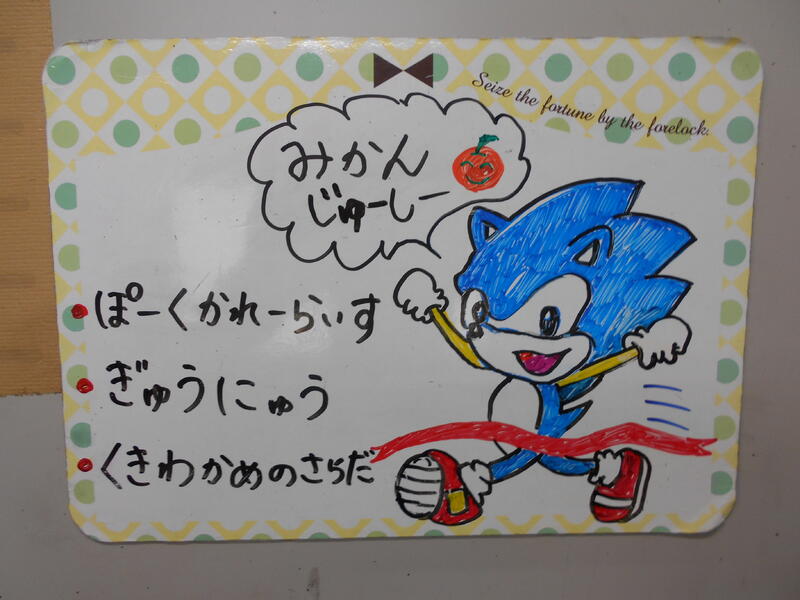 Seize the fortune by the forelock.
みかん
じゅーしー
ぽーくかれーらいす
ぎゅうにゅう
くきわかめのさらだ